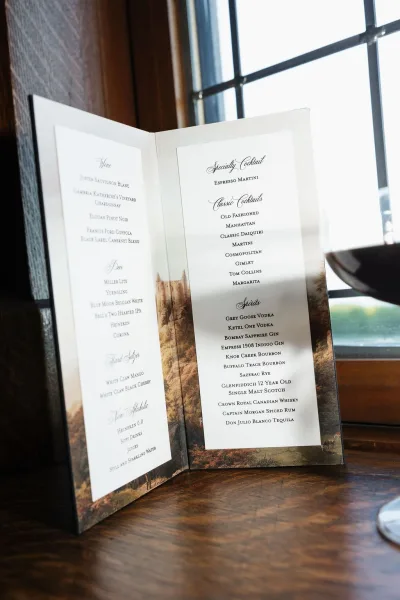 Wine
Sauvignon Blanc
Cambria Katherine's Vineyard
Chardonnay
Pinot Noir
Francis Ford Coppola
Black Label Cabernet Blend
Beer
Miller Lite
Yuengling
Blue Moon Belgian White
Bell's Two Hearted IPA
Heineken
Corona
Hard Seltzer
White Claw Mango
White Claw Black Cherry
Non Alcoholic
Heineken 0.0
Soft Drinks
Juices
Still and Sparkling Water
Specialty Cocktail
Espresso Martini
Classic Cocktails
Old Fashioned
Manhattan
Classic Daiquiri
Martini
Cosmopolitan
Gimlet
Tom Collins
Margarita
Spirits
Grey Goose Vodka
Ketel One Vodka
Bombay Sapphire Gin
Empress 1908 Indigo Gin
Knob Creek Bourbon
Buffalo Trace Bourbon
Sazerac Rye
Glenfiddich 12 Year Old
Single Malt Scotch
Crown Royal Canadian Whisky
Captain Morgan Spiced Rum
Don Julio Blanco Tequila